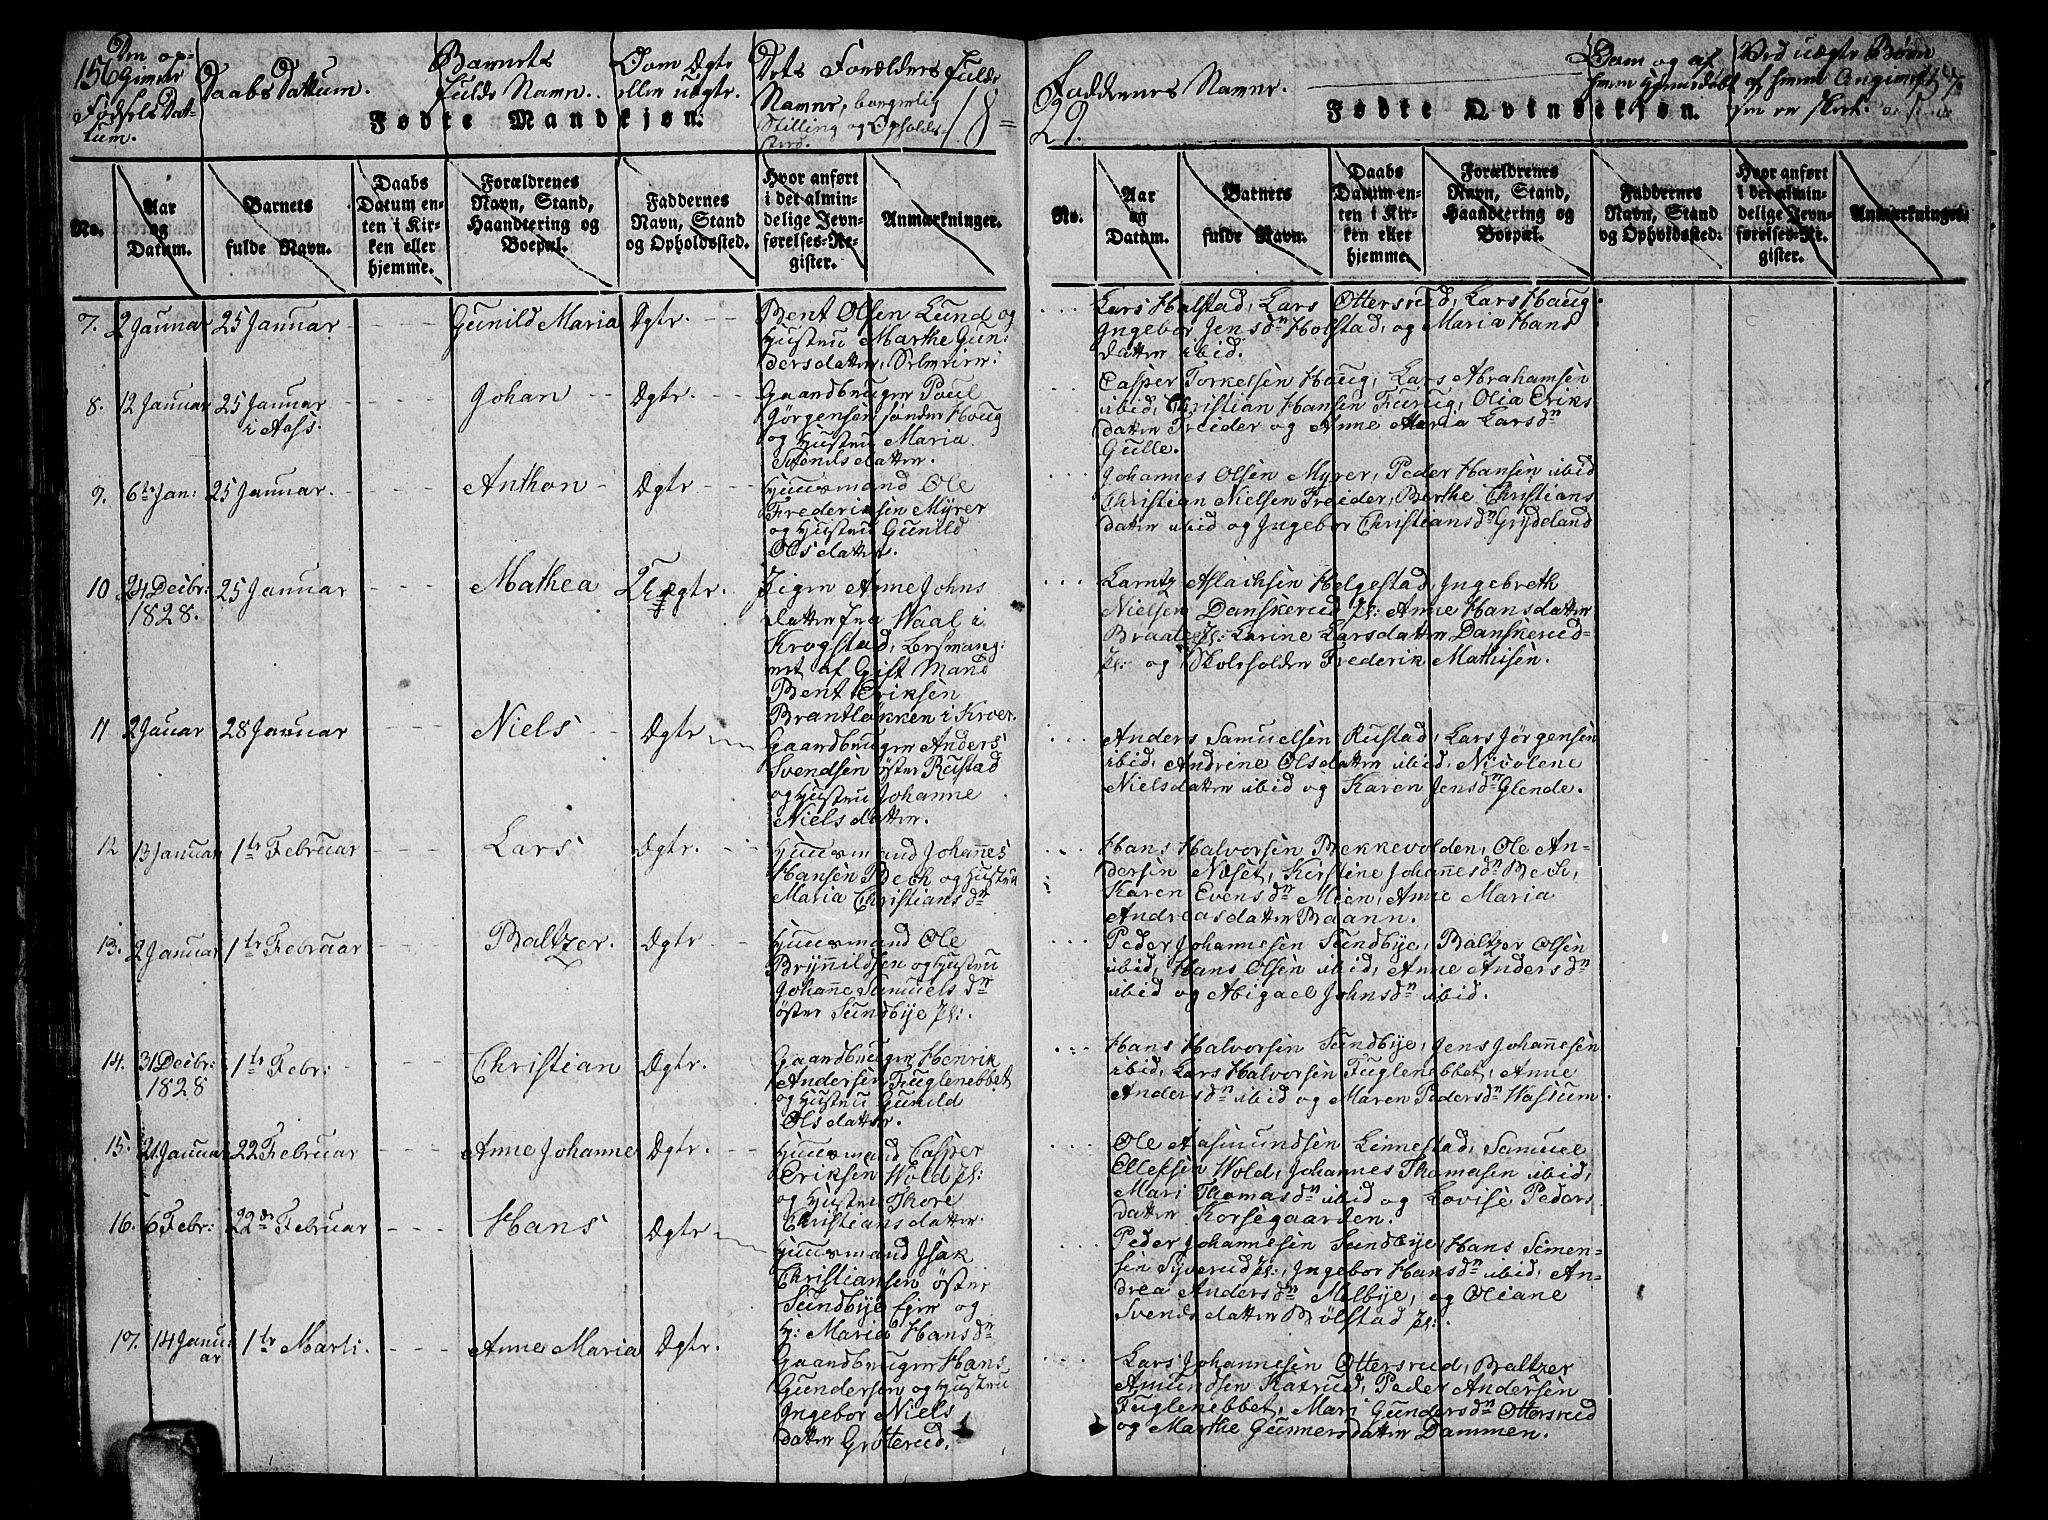 156
Den op-
Givne
Fødsels Dat-
tum.
Daabs Dattum.
Barnets
fulde Navn.
Om Ægte
eller uægte.
Dets Forældres Fulde
Navne, borgerlig
Stilling og Opholds-
sted.
18=
29.
Faddernes Navne.
157.
Fødte Mandkjøn:
Fødte Qvindekjøn.
No.
Aar og Datum.
Barnets fulde Navn.
Daabs Datum enten i Kirken eller hjemme.
Forældrenes Navn, Stand, Haandtering og Boepæl.
Faddernes Navn, Stand og Opholdssted.
Hvor anført i det almindelige Jevnførelses-Register.
Anmærkninger.
No.
Aar og Datum.
Barnets fulde Navn.
Daabs Datum enten i Kirken eller hjemme.
Forældrenes Navn, Stand, Haandtering og Boepæl.
Faddernes Navn, Stand og Opholdssted:
Hvor anført i det almindelige Jevnførelses-Register.
Anmærkninger.
7. 2 Januar 25 Januar Gunild Maria Ægte.
Bent Olsen Lund og
Hustru Marthe Gun-
dersdatter,
Lars Holstad, Lars Ottersrud, Lars Haug
Ingebor Jensdn Holstad, og Maria Hans
datter ibid.
8. 12 Januar 25 Januar i Aass. Johan Ægte.
Gaardbruger Poul
Jørgensen søndre Houg
og Hustru Maria
Svenilsdatter.
Casper Torkelsen Haug, Lars Abrahamsen
ibid, Christian Hansen Furug, Olia Eriks
datter Treider og Anne Maria Larsdn
Gulle.
9. 6te Jan: 25 Januar. Anthon Ægte
Huusmand Ole
Frederiksen Myrer
og Hustru Gunild
Olsdatter.
Johannes Olsen Myrer, Peder Hansen ibid
Christian Nielsen Treider, Berthe Christians
datter ibid og Ingebor Christiansdn Grydeland
10 24 Decbr: 1828. 25 Januar Mathea Uægte.
Pigen Anne Johns
datter fra Waal i
Krogstad, besvang-
ret af Gift Mand
Bent Eriksen
Brantløkken i Kroer.
Larntz Aslachsen Helgestad, Ingebreth
Nielsen Danskerud Pl: Anne Hansdatter
Braate Pl: Larine Larsdatter Danskerud-
Pl: og Skoleholder Frederik Mathisen.
11 2 Januar 28 Januar Niels Ægte
Gaardbruger Anders
Svendsen øster Rustad
og Hustru Johanne
Nielsdatter.
Anders Samuelsen Rustad, Lars Jørgensen
ibid, Andrine Olsdatter ibid, Nicolene
Nielsdatter ibid og Karen Jensdn Glende.
12 13 Januar 1te Februar Lars Ægte.
Huusmand Johannes
Hansen Bech og Hustru
Maria Christiansdn
Hans Halvorsen Bekkevolden, Ole An-
dersen Næset, Kirstine Johannesdn Bech,
Karen Evensdn Mien, Anne Maria
Andreasdatter Baann.
13. 2 Januar 1te Februar Baltzer. Ægte
Huusmand Ole
Brynnildsen og Hustru
Johanne Samuelsdn
øster Sundbye Pl:
Peder Johannesen Sundbye, Baltzer Olsen
ibid, Hans Olsen ibid, Anne Andersdn
ibid og Abigael Johnsdn ibid.
14. 31 Decbr: 1828 1te Febr: Christian Ægte.
Gaardbruger Henrik
Andersen Fuglenebbet
og Hustru Gunild
Olsdatter.
Hans Halvorsen Sundbye, Jens Johannesen
ibid, Lars Halvorsen Fuglenebbet, Anne
Andersdn ibid og Maren Pedersdn Wasium.
15. 21 Januar 22 Februar Anne Johanne Ægte.
Huusmand Casper
Eriksen Wold Pl:
og Hustru Thore
Christiansdatter.
Ole Aasmundsen Linnestad, Samuel
Ellefsen Wold, Johannes Thomasen ibid,
Mari Thomasdn ibid og Lovise Peders
datter Korsegaarden.
16. 6 Febr: 22de Februar Hans Ægte
Huusmand Isak
Christiansen øster
Sundbye Eier og
H: Maria Hansdn
Peder Johannesen Sundbye, Hans Simen-
sen Syverud Pl:, Ingebor Hansdn ibid, An-
drea Andersdn Melbye, og Oliane
Svendsdatter Bølstad Pl:
17. 14 Janu-
ar 1te Marti. Anne Maria Ægte.
Gaardbruger Hans
Gundersen og Hustru
Ingebor Niels
datter Groterud.
Lars Johannesen Ottersrud, Baltzer
Amundsen Katrud, Peder Andersen
Fuglenebbet, Mari Gundersdn Ottersrud
og Marthe Gunnersdatter Dammen.